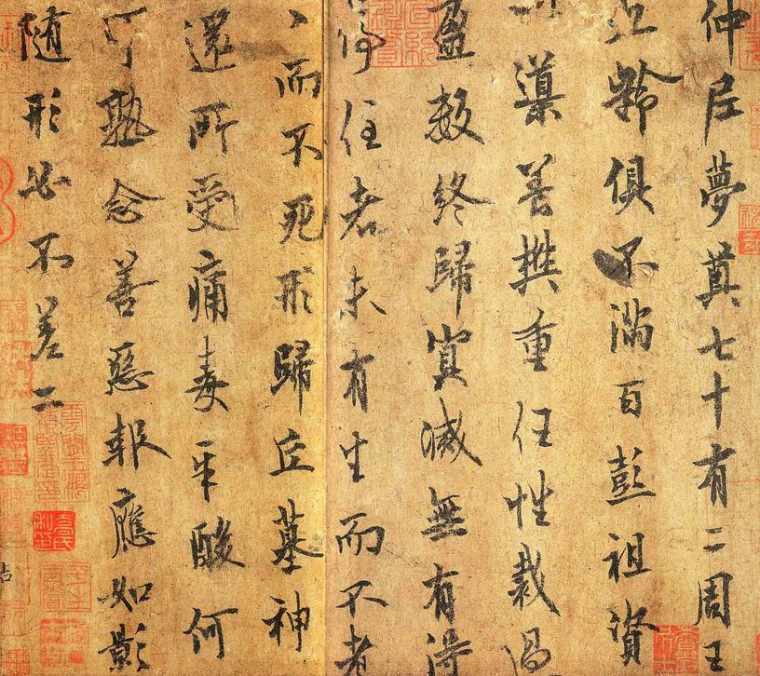 仲尼夢奠七十有二周王
九齡俱不滿百彭祖資
導養樊重任性裁過
盈數終歸冥滅無有得
停住者未有生而不老
丶而不死形歸丘墓神
還所受痛毒辛酸何
可熟念善惡報應如影
隨形必不差二